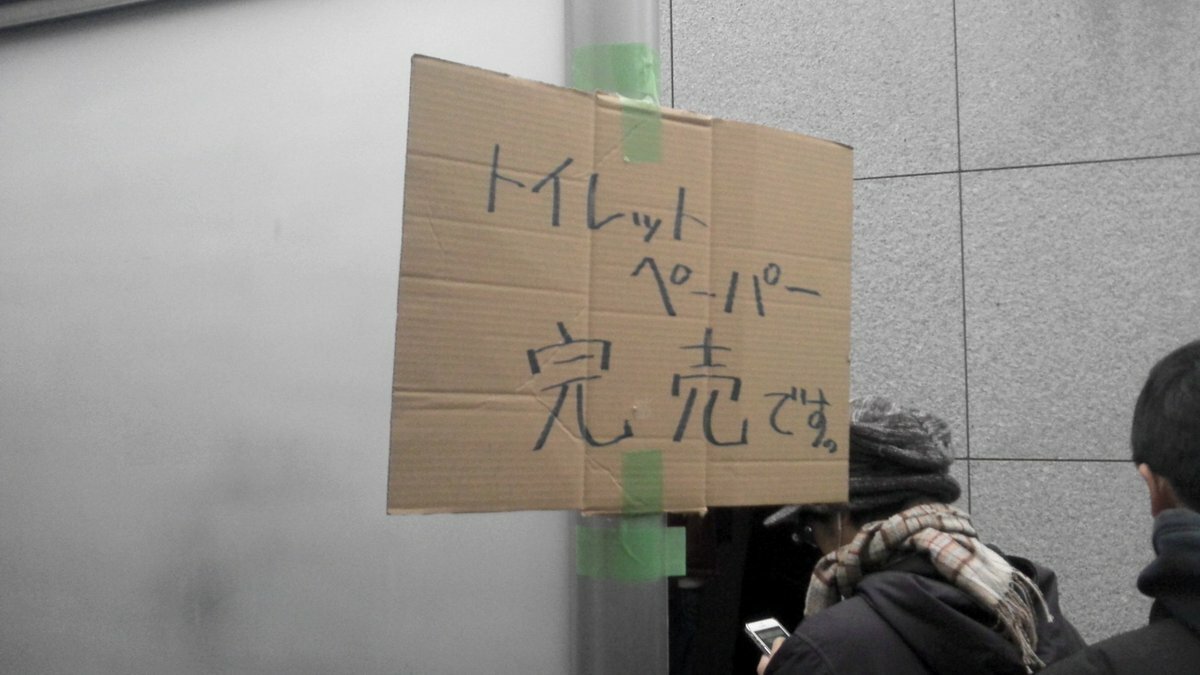 トイレット
ペーパー
完売です。